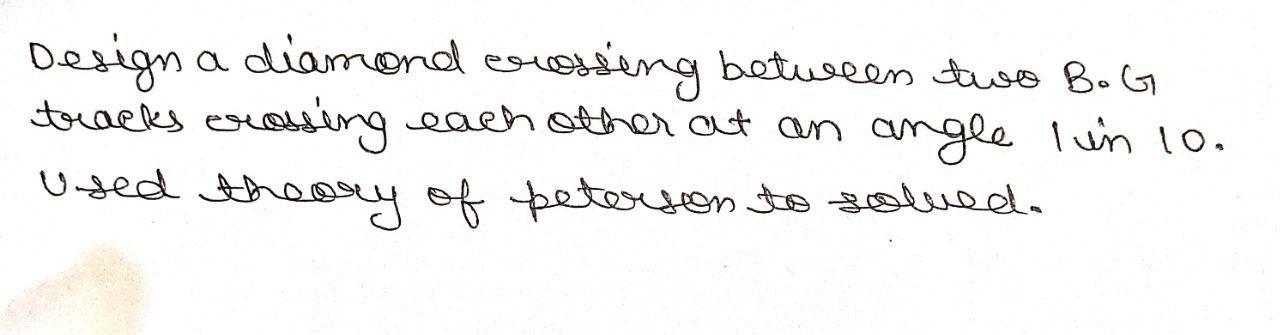 Design a diamond crossing between two B.G
tracks crossing each other at an angle 1 in 10.
Used theory of peterson to solved.